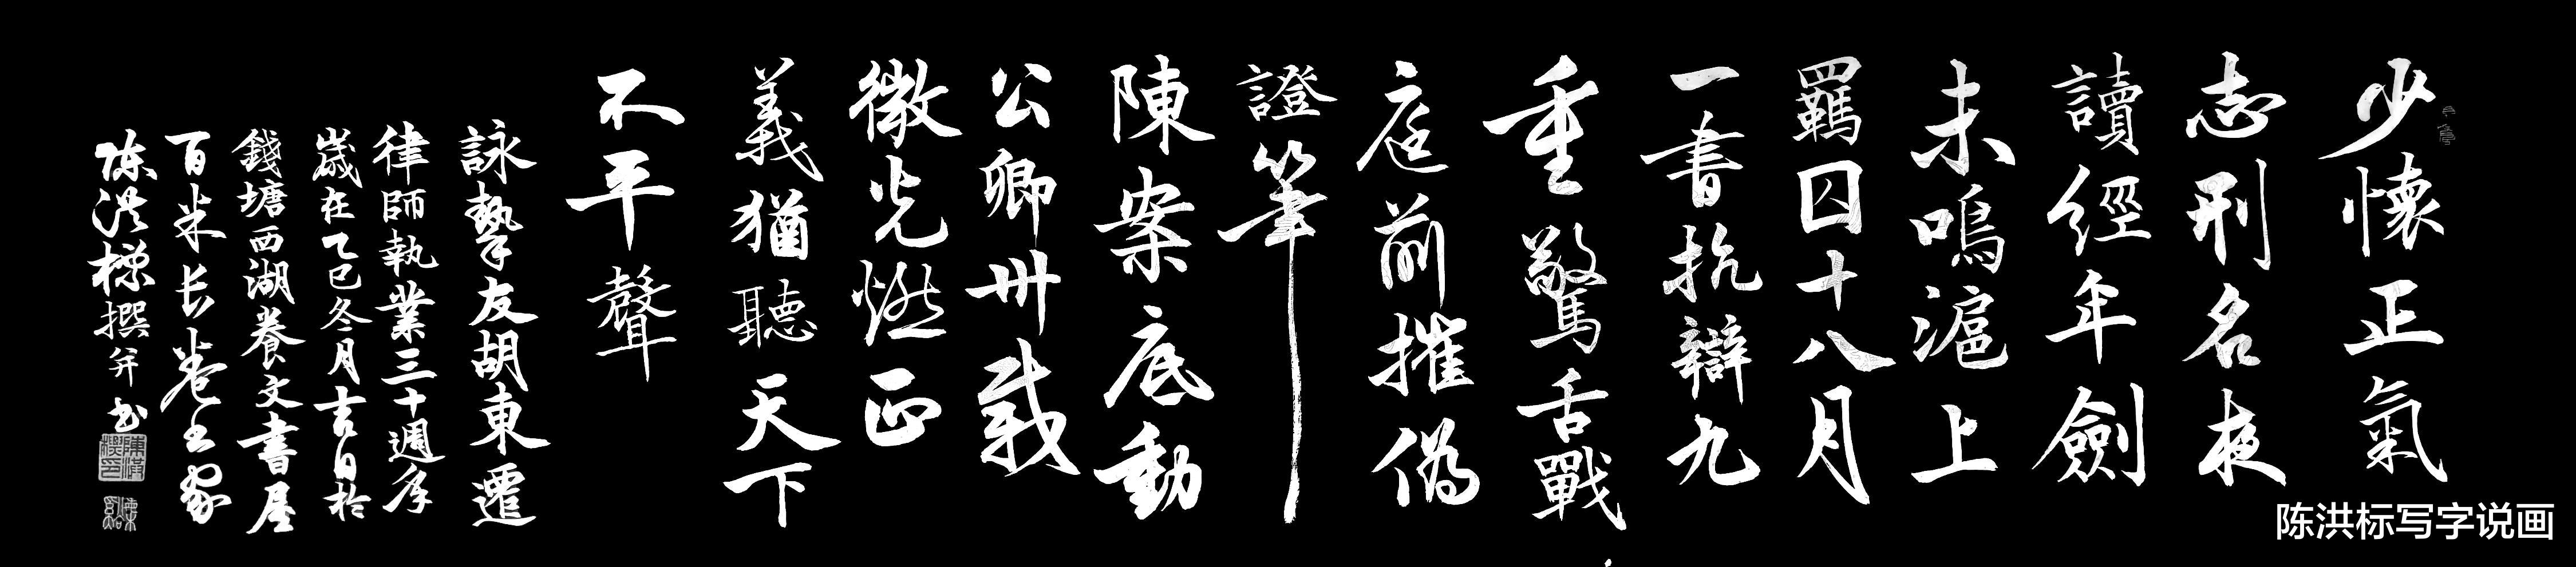 少懷正氣
志刑名夜
讀經年劍
未鳴滬上
羈囚十八月
一書抗辯九
重驚舌戰
庭前摧偽
證筆
陳案底動
公卿卅載
微光燃正
義猶聽天下
不平聲
詠摯友胡東遷
律師執業三十週年
歲在乙巳冬月吉日於
錢塘西湖養文書屋
百米长卷書家
陈洪標撰并书
陈洪标写字说画